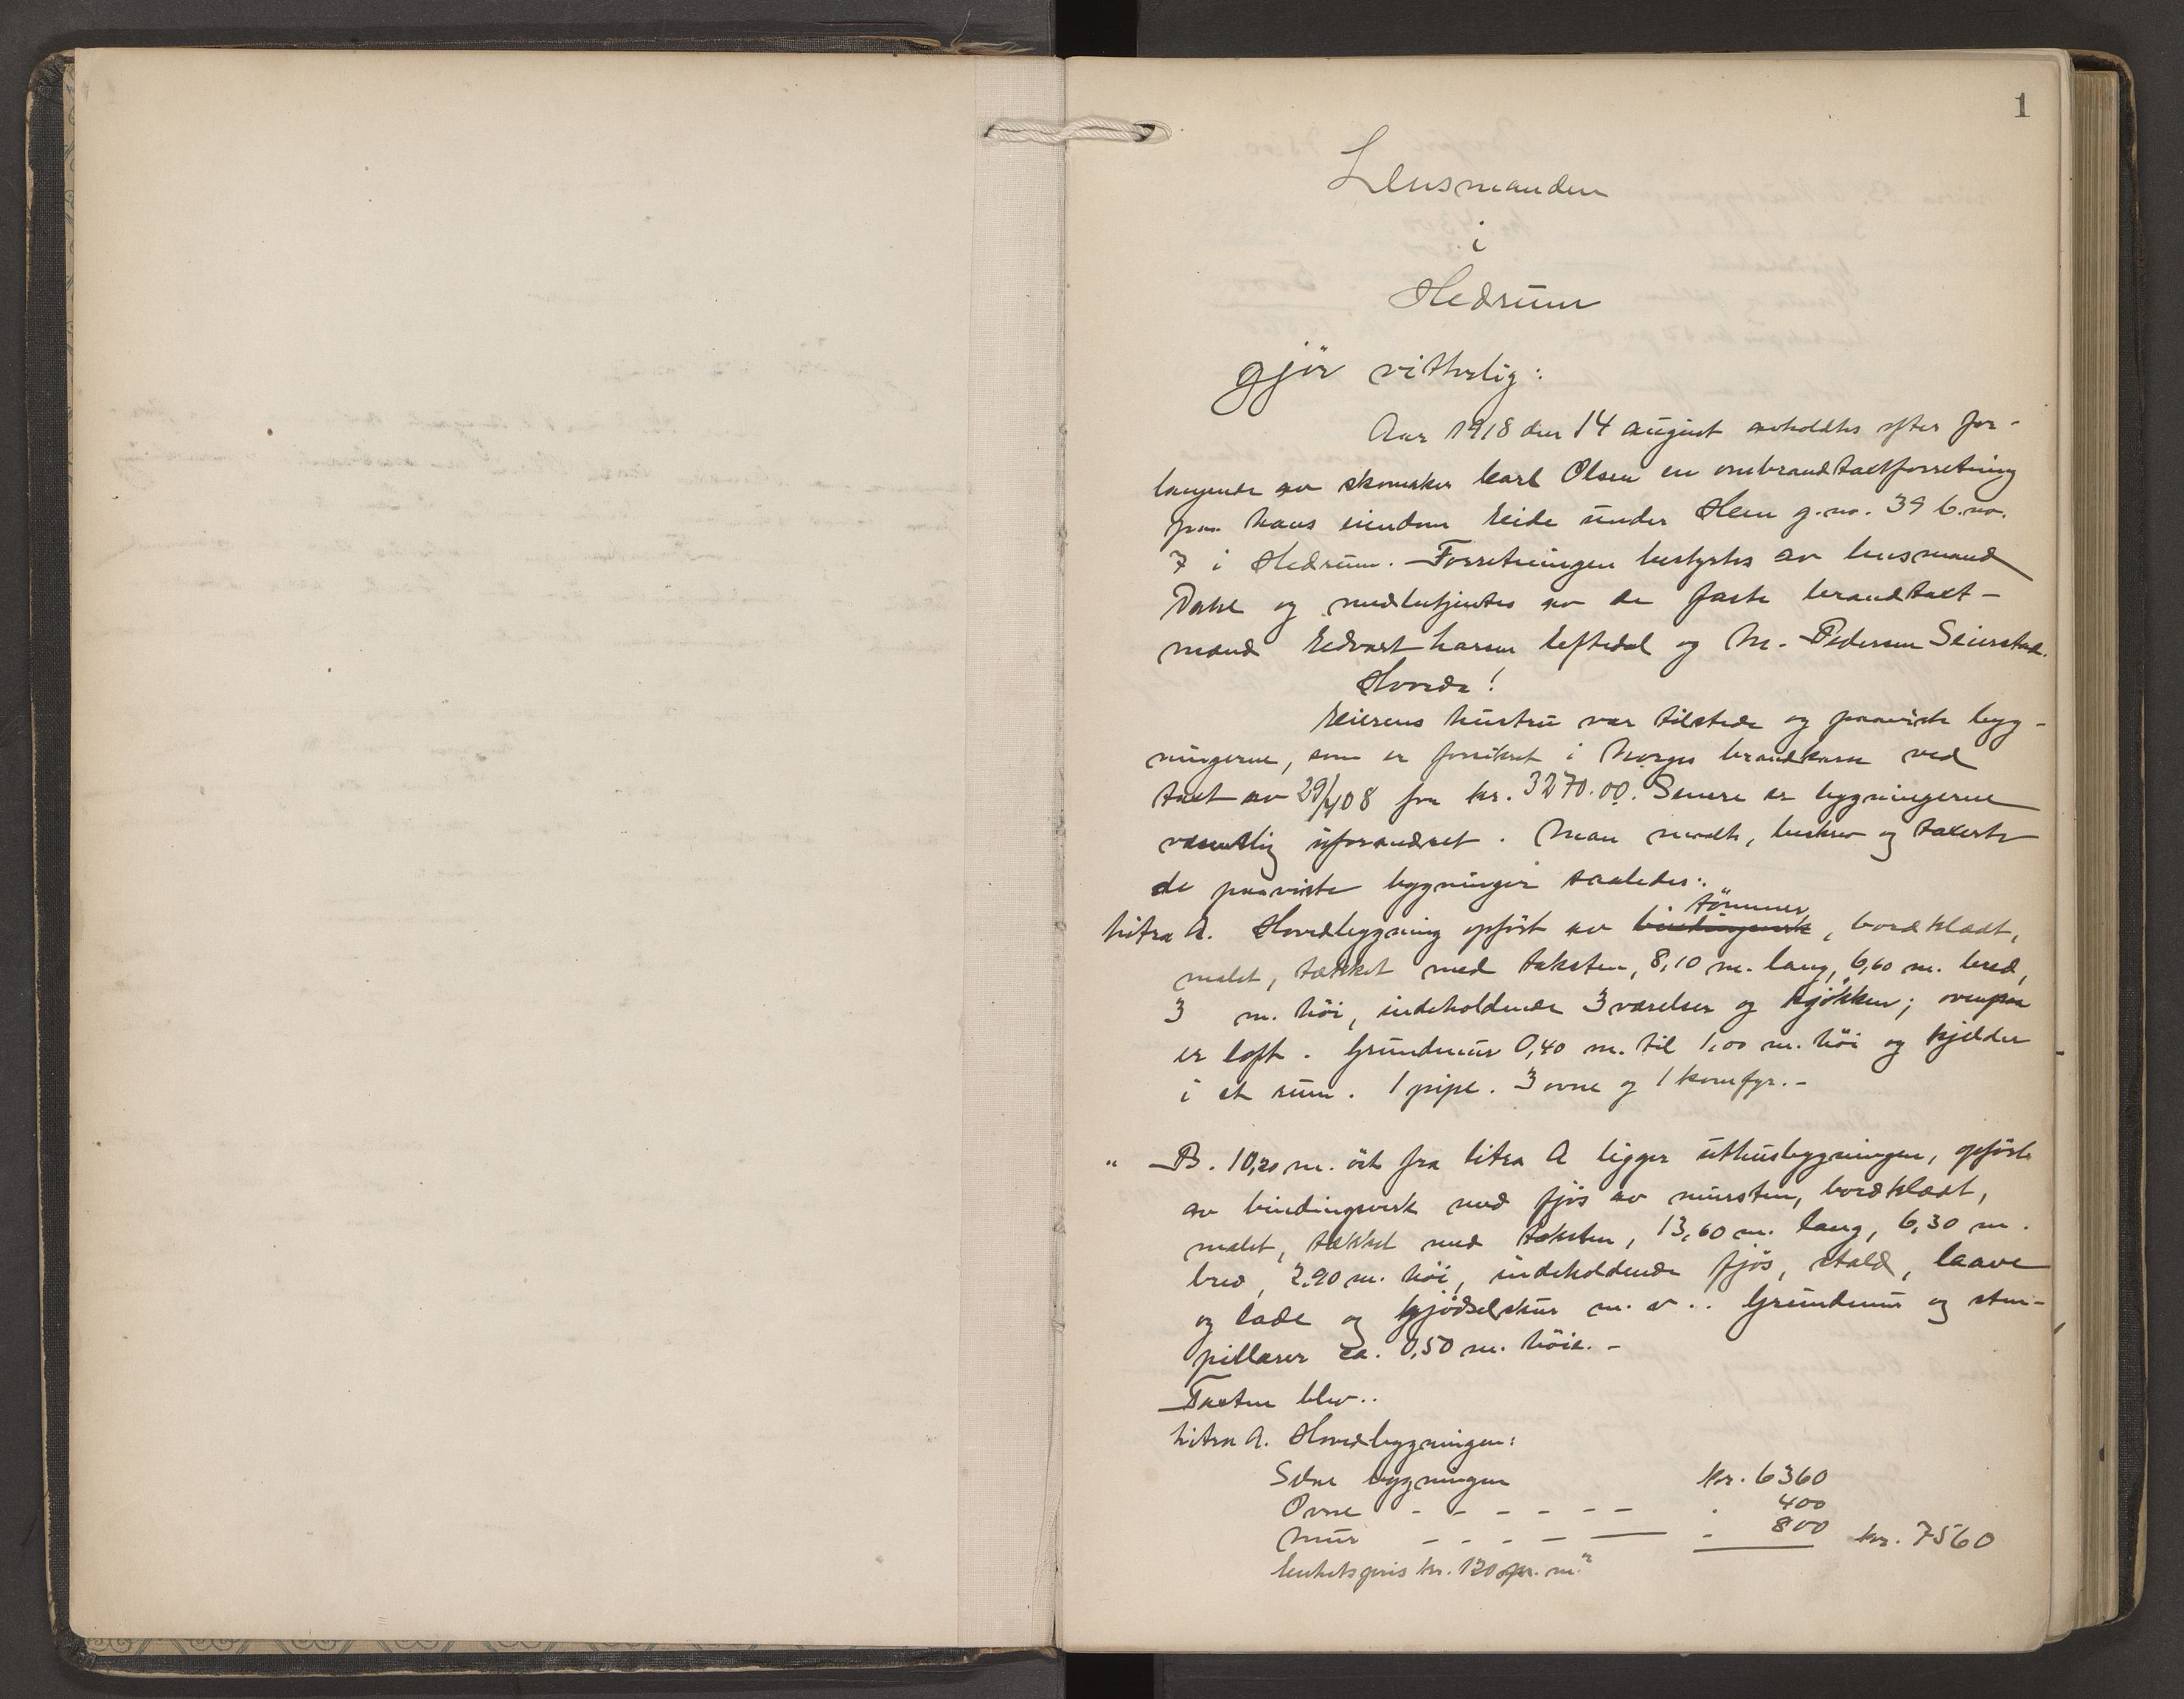 1
Lensmanden
i
Hedrum
gjør vitterlig:
Aar 1918 den 14 august avholdtes efter for-
langende av skomaker Karl Olsen en ombrandtaxtforretning
paa hans eiendom Eide under Hem g.no. 39 b.no.
7 i Hedrum. Forretningen bestyrtes av lensmand
Dahl og medbetjentes av de faste brandtaxt-
mænd Edvart Larsen Eftedal og M. Pedersen Seierstad.
Hvorda!
Eierens hustru var tilstede og paaviste byg-
ningerne, som er forsikret i Norges brandkasse ved
taxt av 29/4 08 for kr. 3270.00. Senere er bygningerne
væsentlig uforandret. Man maalte, beskrev og taxerte
de paaviste bygninger saaledes:
tömmer
Litra A. Hovedbygning opført av bindingsverk, bordklædt,
malet, tækket med taksten, 8,10 m. lang, 6,60 m. bred,
3 m. høi, indeholdende 3 værelser og kjøkken; ovenpaa
er loft. Grundmur 0,40 m. til 1,00 m. høi og kjelder
i et rum. 1 pipe. 3 ovne og 1 komfyr.-
" B. 10,20 m. öst fra litra A ligger uthusbygningen, opført
av bindingsverk med fjös av mursten, bordklædt,
malet, tækket med taksten, 13,60 m. lang, 6,30 m.
bred, 2.90 m. höi, indeholdende fjös, stald, laave
og lade og gjødselskur m. v.. Grundmur og sten-
pillarer ca. 0,50 m. höie.-
Taxten blev..
Litra A. Hovedbygningen:
Selve bygningen kr. 6360
Ovne - - - - - - . 400
Mur - - - - - 800 kr. 7560
Enhetspris kr. 120 pr. m²